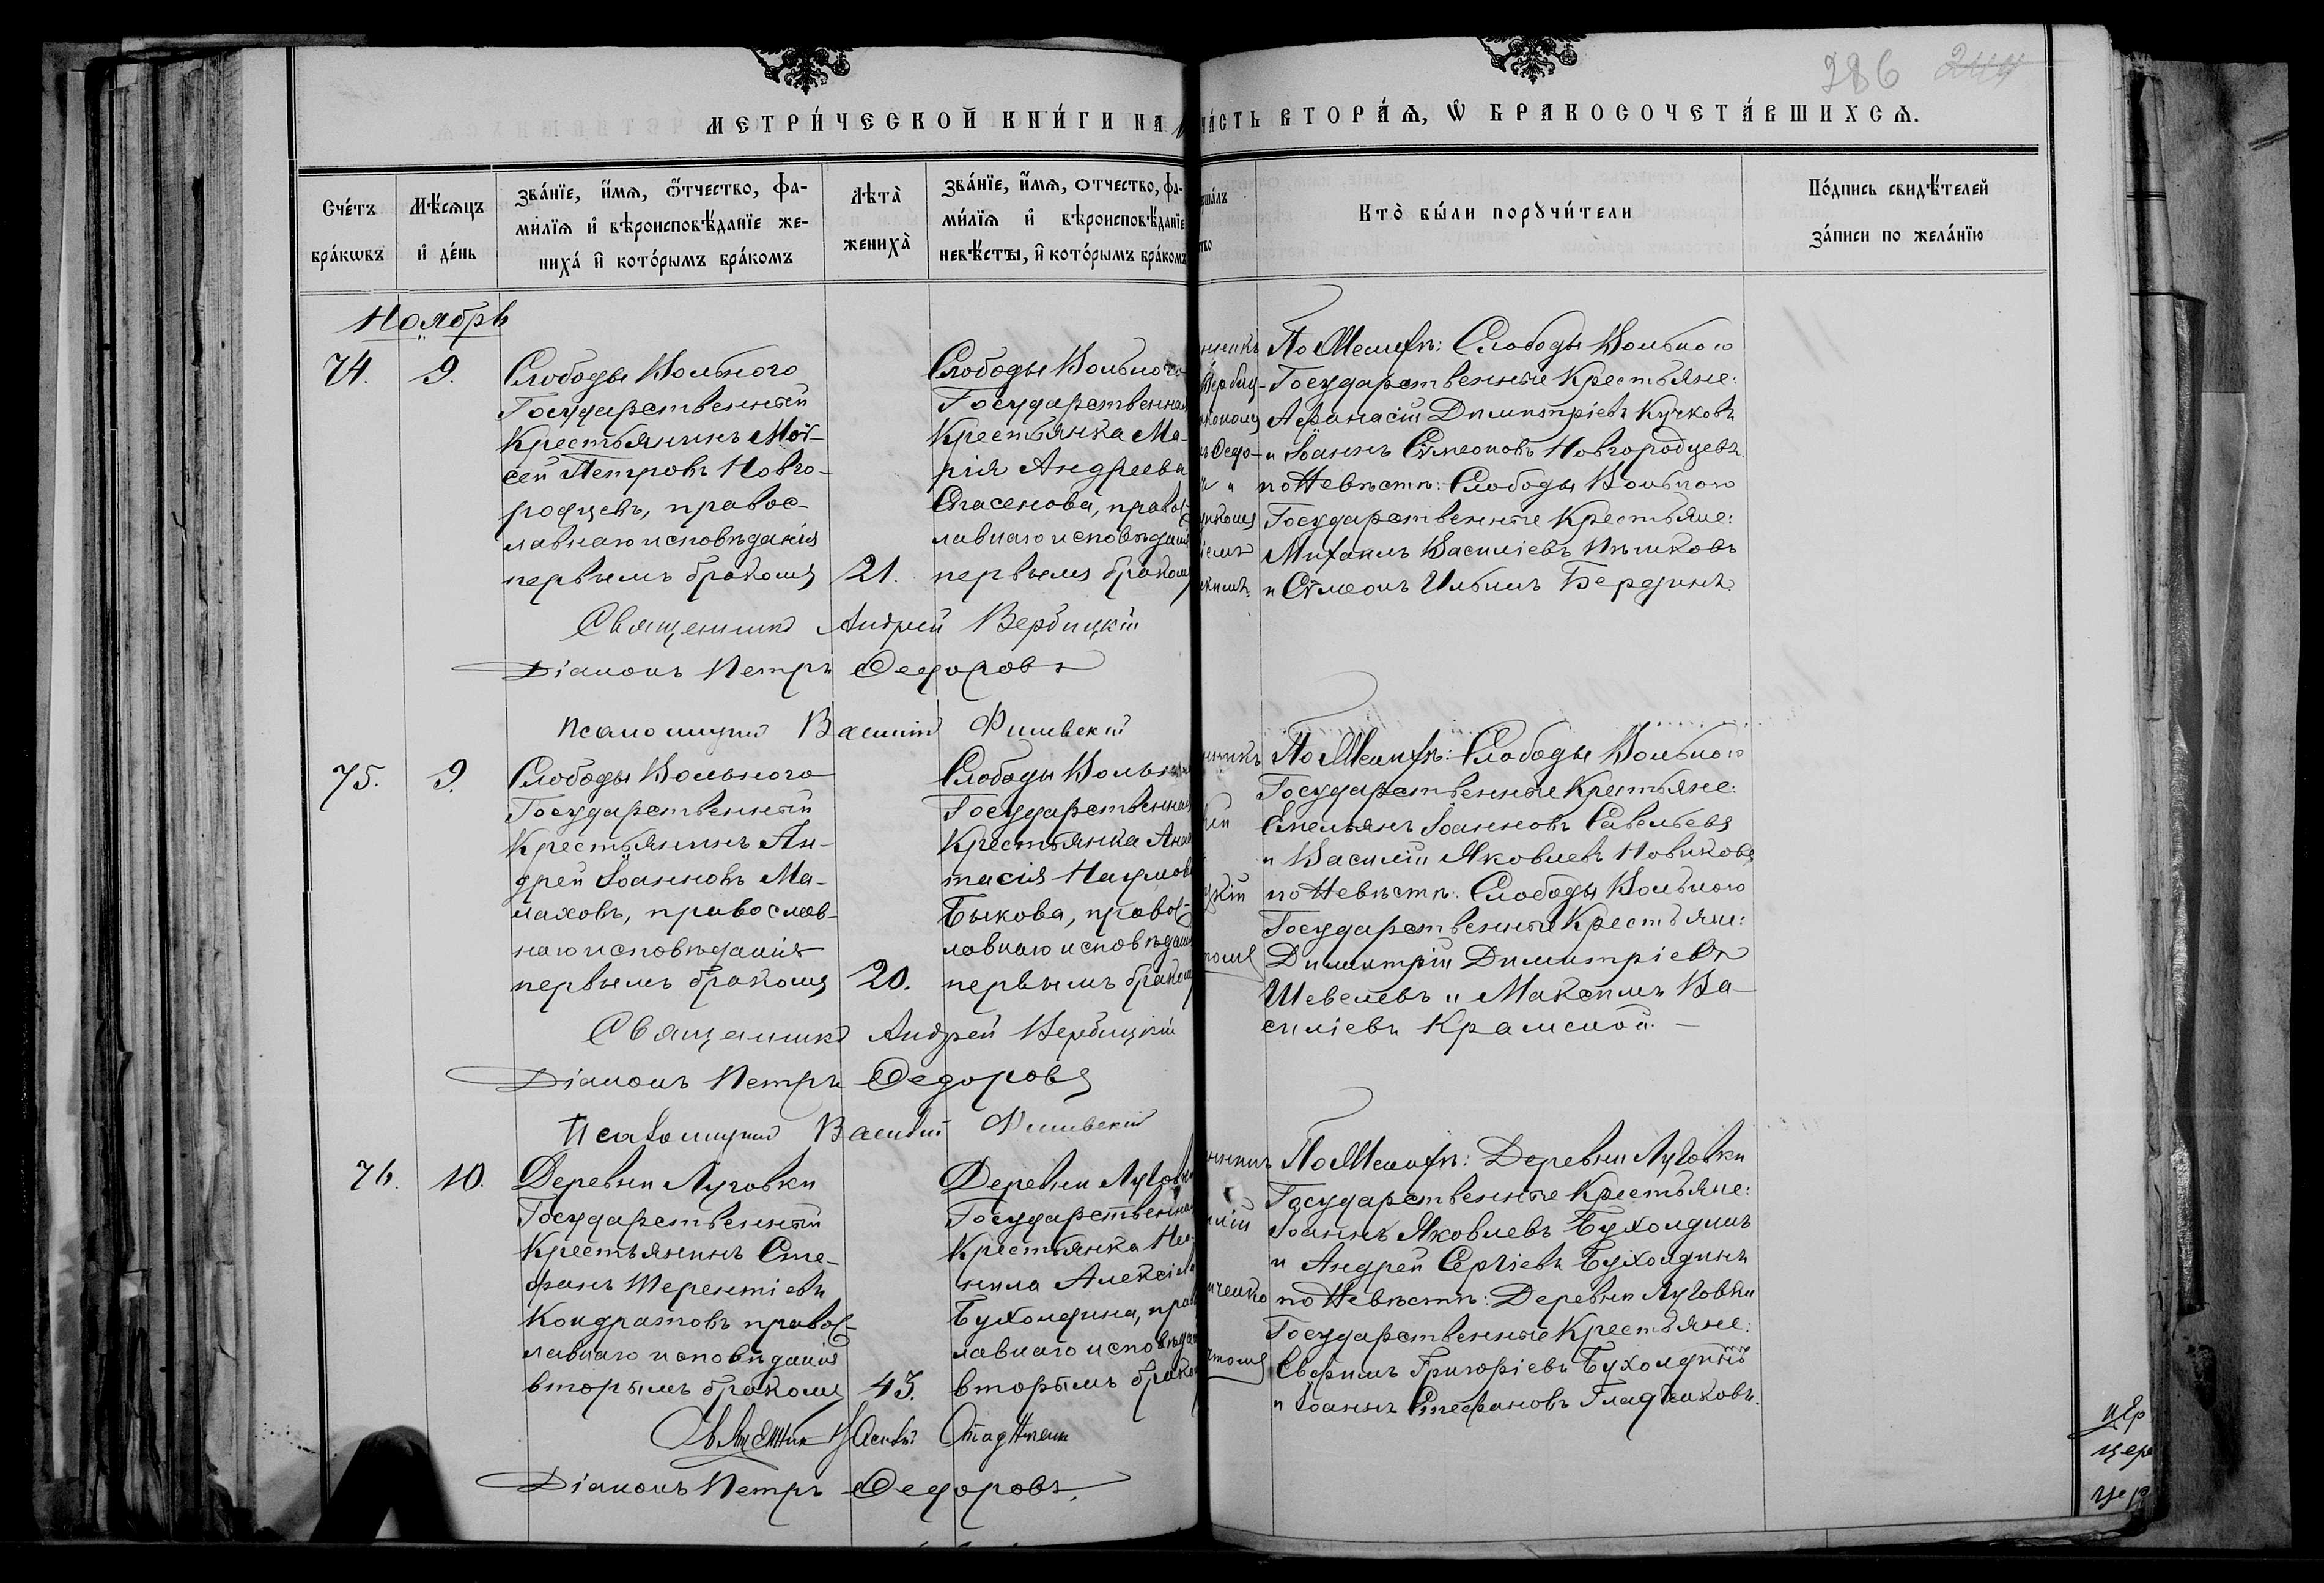 286 244
МЕТРИ́ЧЕСКОЙ КНИ́ГИ НА
ЧА́СТЬ ВТОРА́Ѧ, Ѡ БРАКОСОЧЕТА́ВШИХСѦ.
Сче́тъ
бра́кѡвъ
Мѣ́сяцъ
и де́нь
Зва́нїе, и́мѧ, ѻ́тчество, фа-
ми́лїѧ и вѣроисповѣ́данїе же-
ниха́ и кото́рымъ бра́комъ
Лѣта̀
жениха̀
Зва́нїе, и́мѧ, отчество, фа-
ми́лїѧ и вѣроисповѣ́данїе
невѣ́сты, и кото́рымъ бра́комъ
Кто̀ бы́ли порꙋчи́тели
По́дпись свидѣ́телей
за́писи по жела́нїю
Ноябрь
74.
9.
Слободы Вольного
Государственный
Крестьянинъ Мої-
сей Петровъ Новго-
родцевъ, правос-
лавнаго исповѣданія
первымъ бракомъ
21.
Слободы Вольного
Государственная
Крестьянка Ма-
рія Андреева
Спасенова, правос-
лавнаго исповѣданія
первымъ бракомъ
По Женихѣ: Слободы Вольного
Государственные Крестьяне:
Афанасій Димитріевъ Кучковъ
и Іоаннъ Сѵмеоновъ Новгородцевъ
по Невѣстѣ: Слободы Вольного
Государственные Крестьяне:
Михаилъ Василіевъ Пѣшковъ
и Сѵмеонъ Ильинъ Бердинъ
Священникъ Андрей Вербицкій
Діаконъ Петръ Федоровъ
Псаломщикъ Василій
75.
9.
Слободы Вольного
Государственный
Крестьянинъ Ан-
дрей Іоанновъ Ма-
лаховъ, православ-
наго исповѣданія
первымъ бракомъ
20.
Слободы Вольного
Государственная
Крестьянка Анас
тасія Наумова
Быкова, правос-
лавнаго исповѣданія
первымъ бракомъ
По Женихѣ: Слободы Вольного
Государственные Крестьяне:
Емельянъ Іоанновъ Савельевъ
и Василій Яковлевъ Новиковъ
по Невѣстѣ: Слободы Вольного
Государственные Крестьяне:
Димитрій Димитріевъ
Шевелевъ и Максимъ Ва-
силіевъ Крамской.
Священникъ Андрей Вербицкій
Діаконъ Петръ Федоровъ
Псаломщикъ Василій
76.
10.
Деревни Луговки
Государственный
Крестьянинъ Сте-
фанъ Терентіевъ
Кондратовъ правос-
лавнаго исповѣданія
вторымъ бракомъ
43.
Деревни Луговки
Государственная
Крестьянка Нео-
нила Алексіева
Бухолдина, правос
лавнаго исповѣдан
вторымъ браком
По Женихѣ: Деревни Луговки
Государственные Крестьяне:
Іоаннъ Яковлевъ Бухолдинъ
и Андрей Сергіевъ Бухолдинъ
по Невѣстѣ: Деревни Луговки
Государственные Крестьяне:
Евфимъ Григоріевъ Бухолдинъ
и Іоаннъ Стефановъ Гладченковъ.
Священникъ Василій
Діаконъ Петръ Федоровъ.